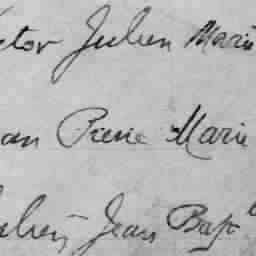 ctor Julien Marie
an Pierre Marie
ulien Jean Bapt